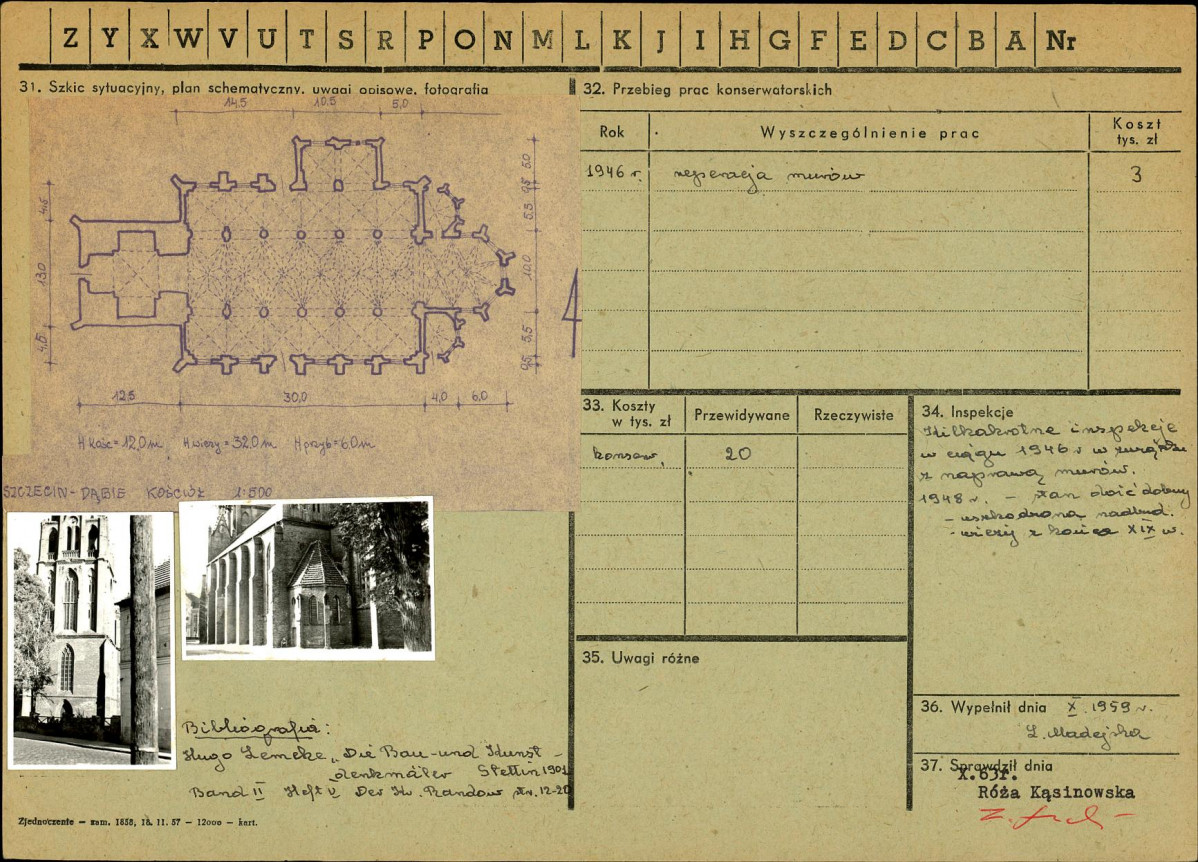 Z Y X W V U T S R P O N M L K J I H G F E D C B A Nr
31. Szkic sytuacyjny, plan schematyczny, uwagi opisowe, fotografia
14,5 10,5 5,0
4,5 13,0 4,5
5,0 9,5 5,5 12,0 5,5 9,5
12,5 30,0 4,0 6,0
H kośc = 12,0 m H wieży = 32,0 m H przyb = 6,0 m
SZCZECIN - DĄBIE KOŚCIÓŁ 1:500
Bibliografia:
Hugo Lemcke „Die Bau- und Kunst-
denkmäler Stettin 1901
Band II Heft V Der Kr. Randow str. 12-20
Zjednoczenie — zam. 1858, 18. 11. 57 — 12000 — kart.
32. Przebieg prac konserwatorskich
Rok Wyszczególnienie prac Koszt tys. zł
1946 r. reperacja murów 3
33. Koszty w tys. zł Przewidywane Rzeczywiste
konserw. 20
34. Inspekcje
Kilkakrotne inspekcje
w ciągu 1946 r w związku
z naprawą murów.
1948 r. - stan dość dobry
- uszkodzona nadbud.
- wieży z końca XIX w.
35. Uwagi różne
36. Wypełnił dnia X 1959 r.
L. Madejska
37. Sprawdził dnia
X.63r.
Róża Kąsinowska